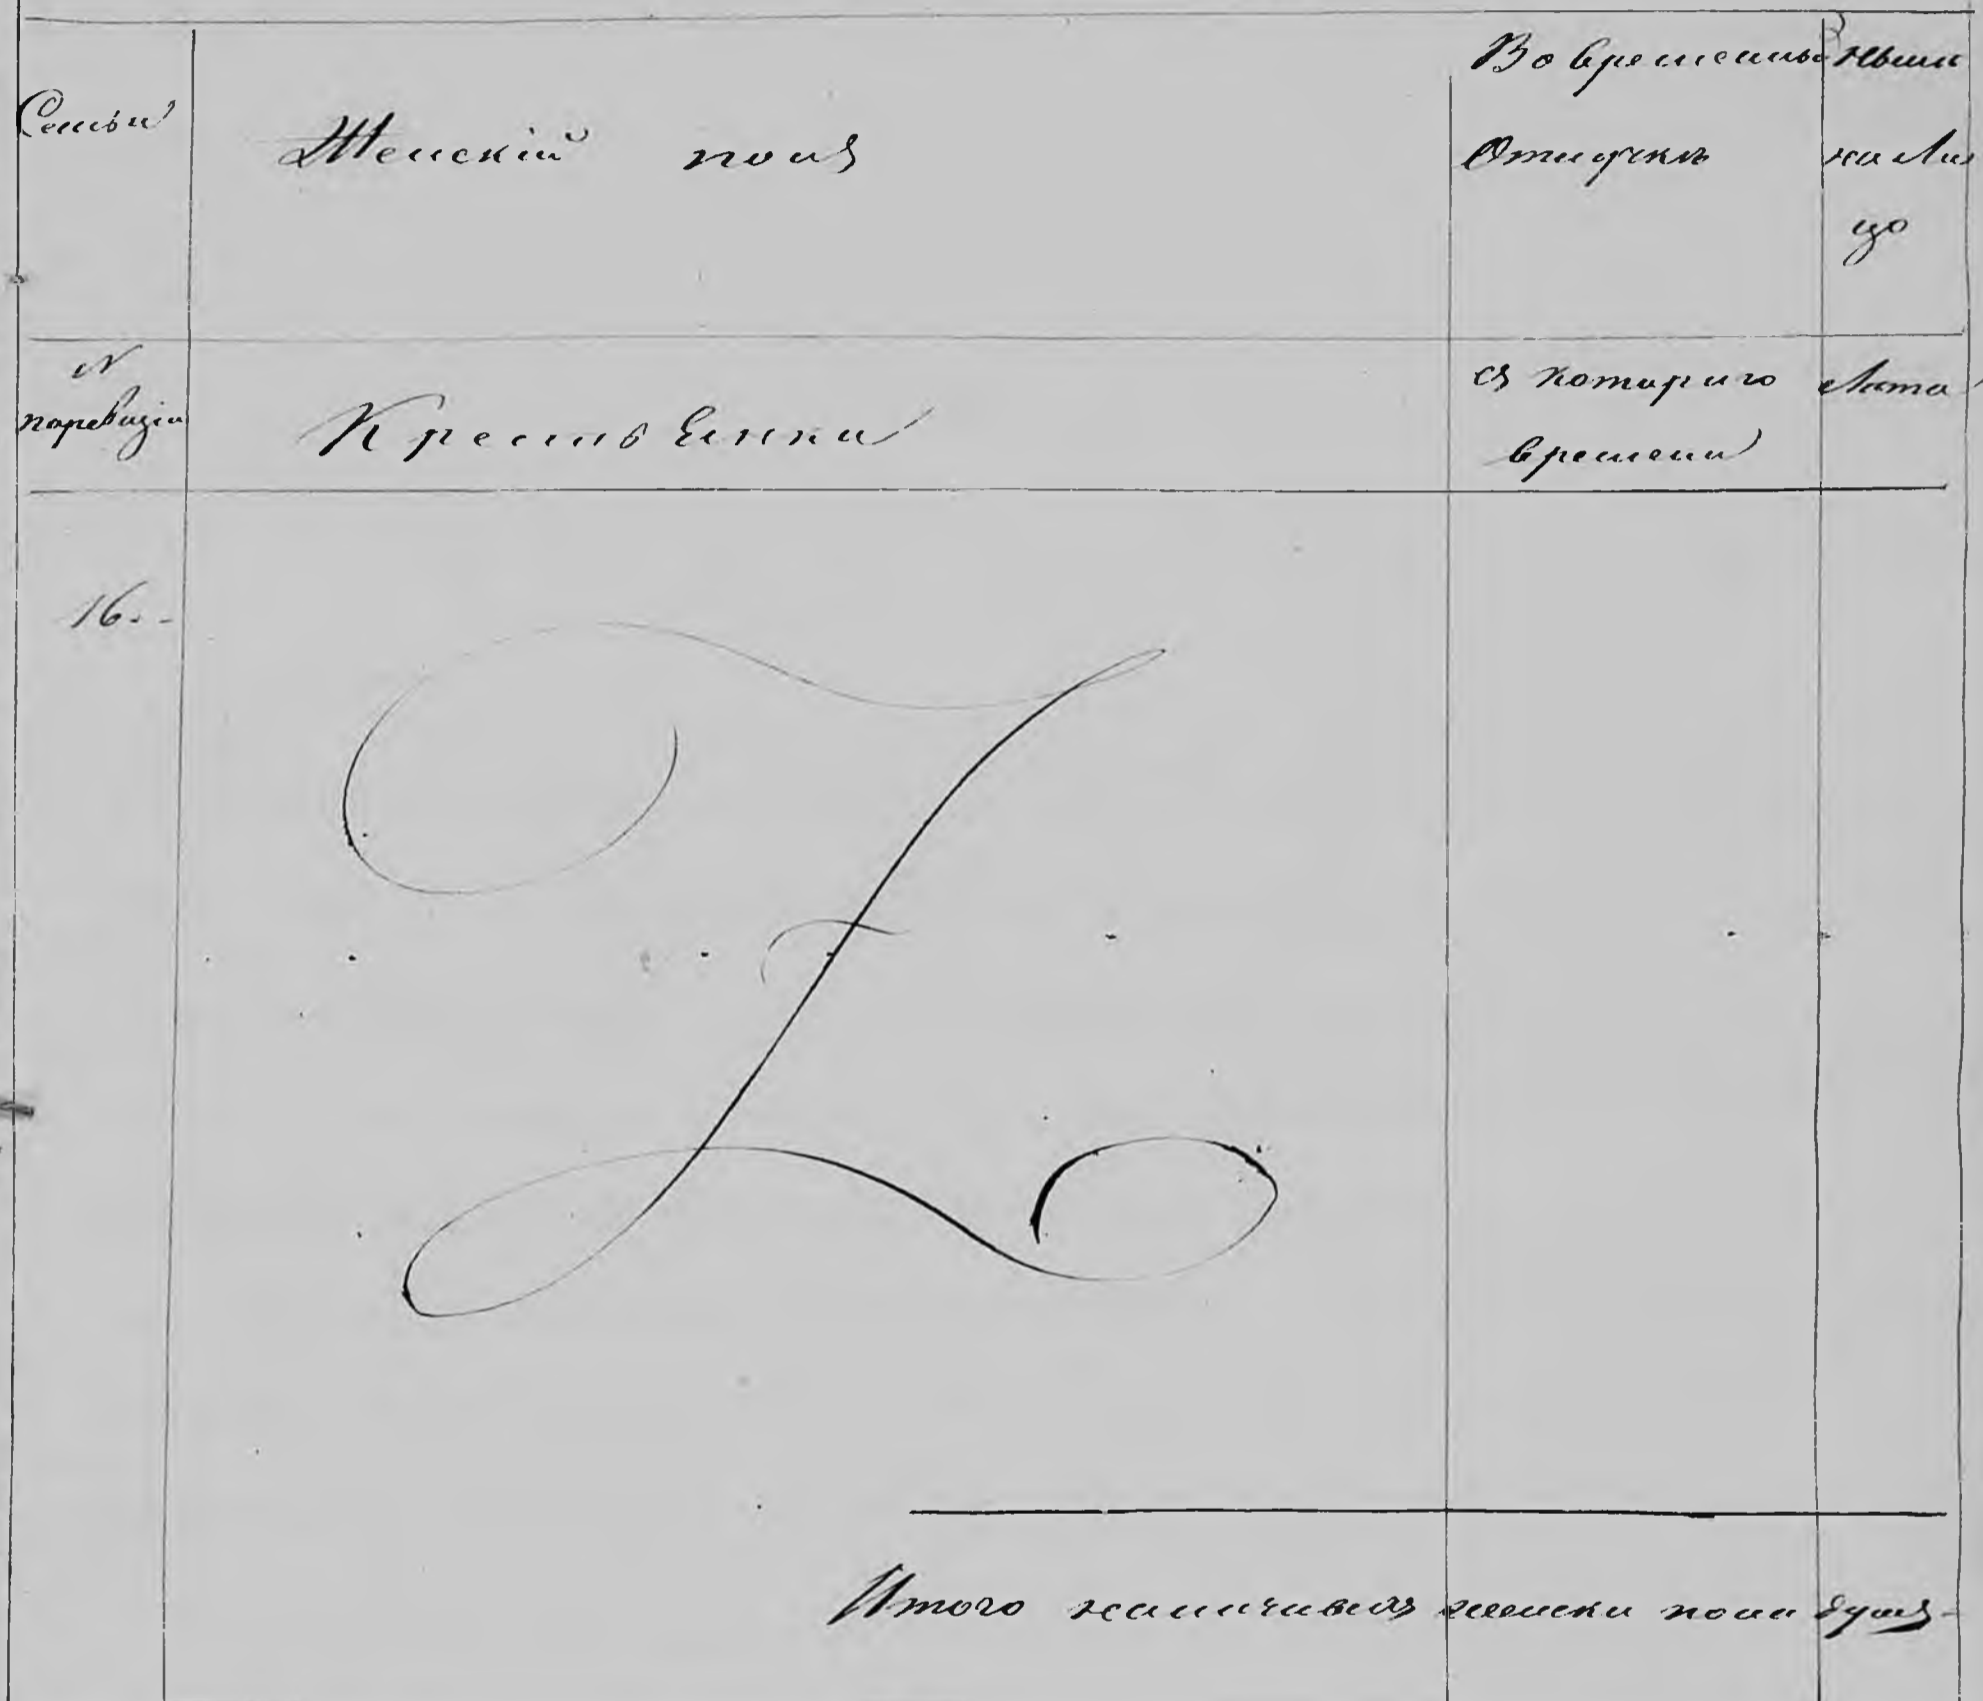 Семьи
Женскій полъ
Во временно
Отлучкѣ
Нынѣ
на ли
цо
№
поревизіи
Крестьенки
съ котораго
времени
Лѣта
16.
Итого наличныхъ женска пола душъ